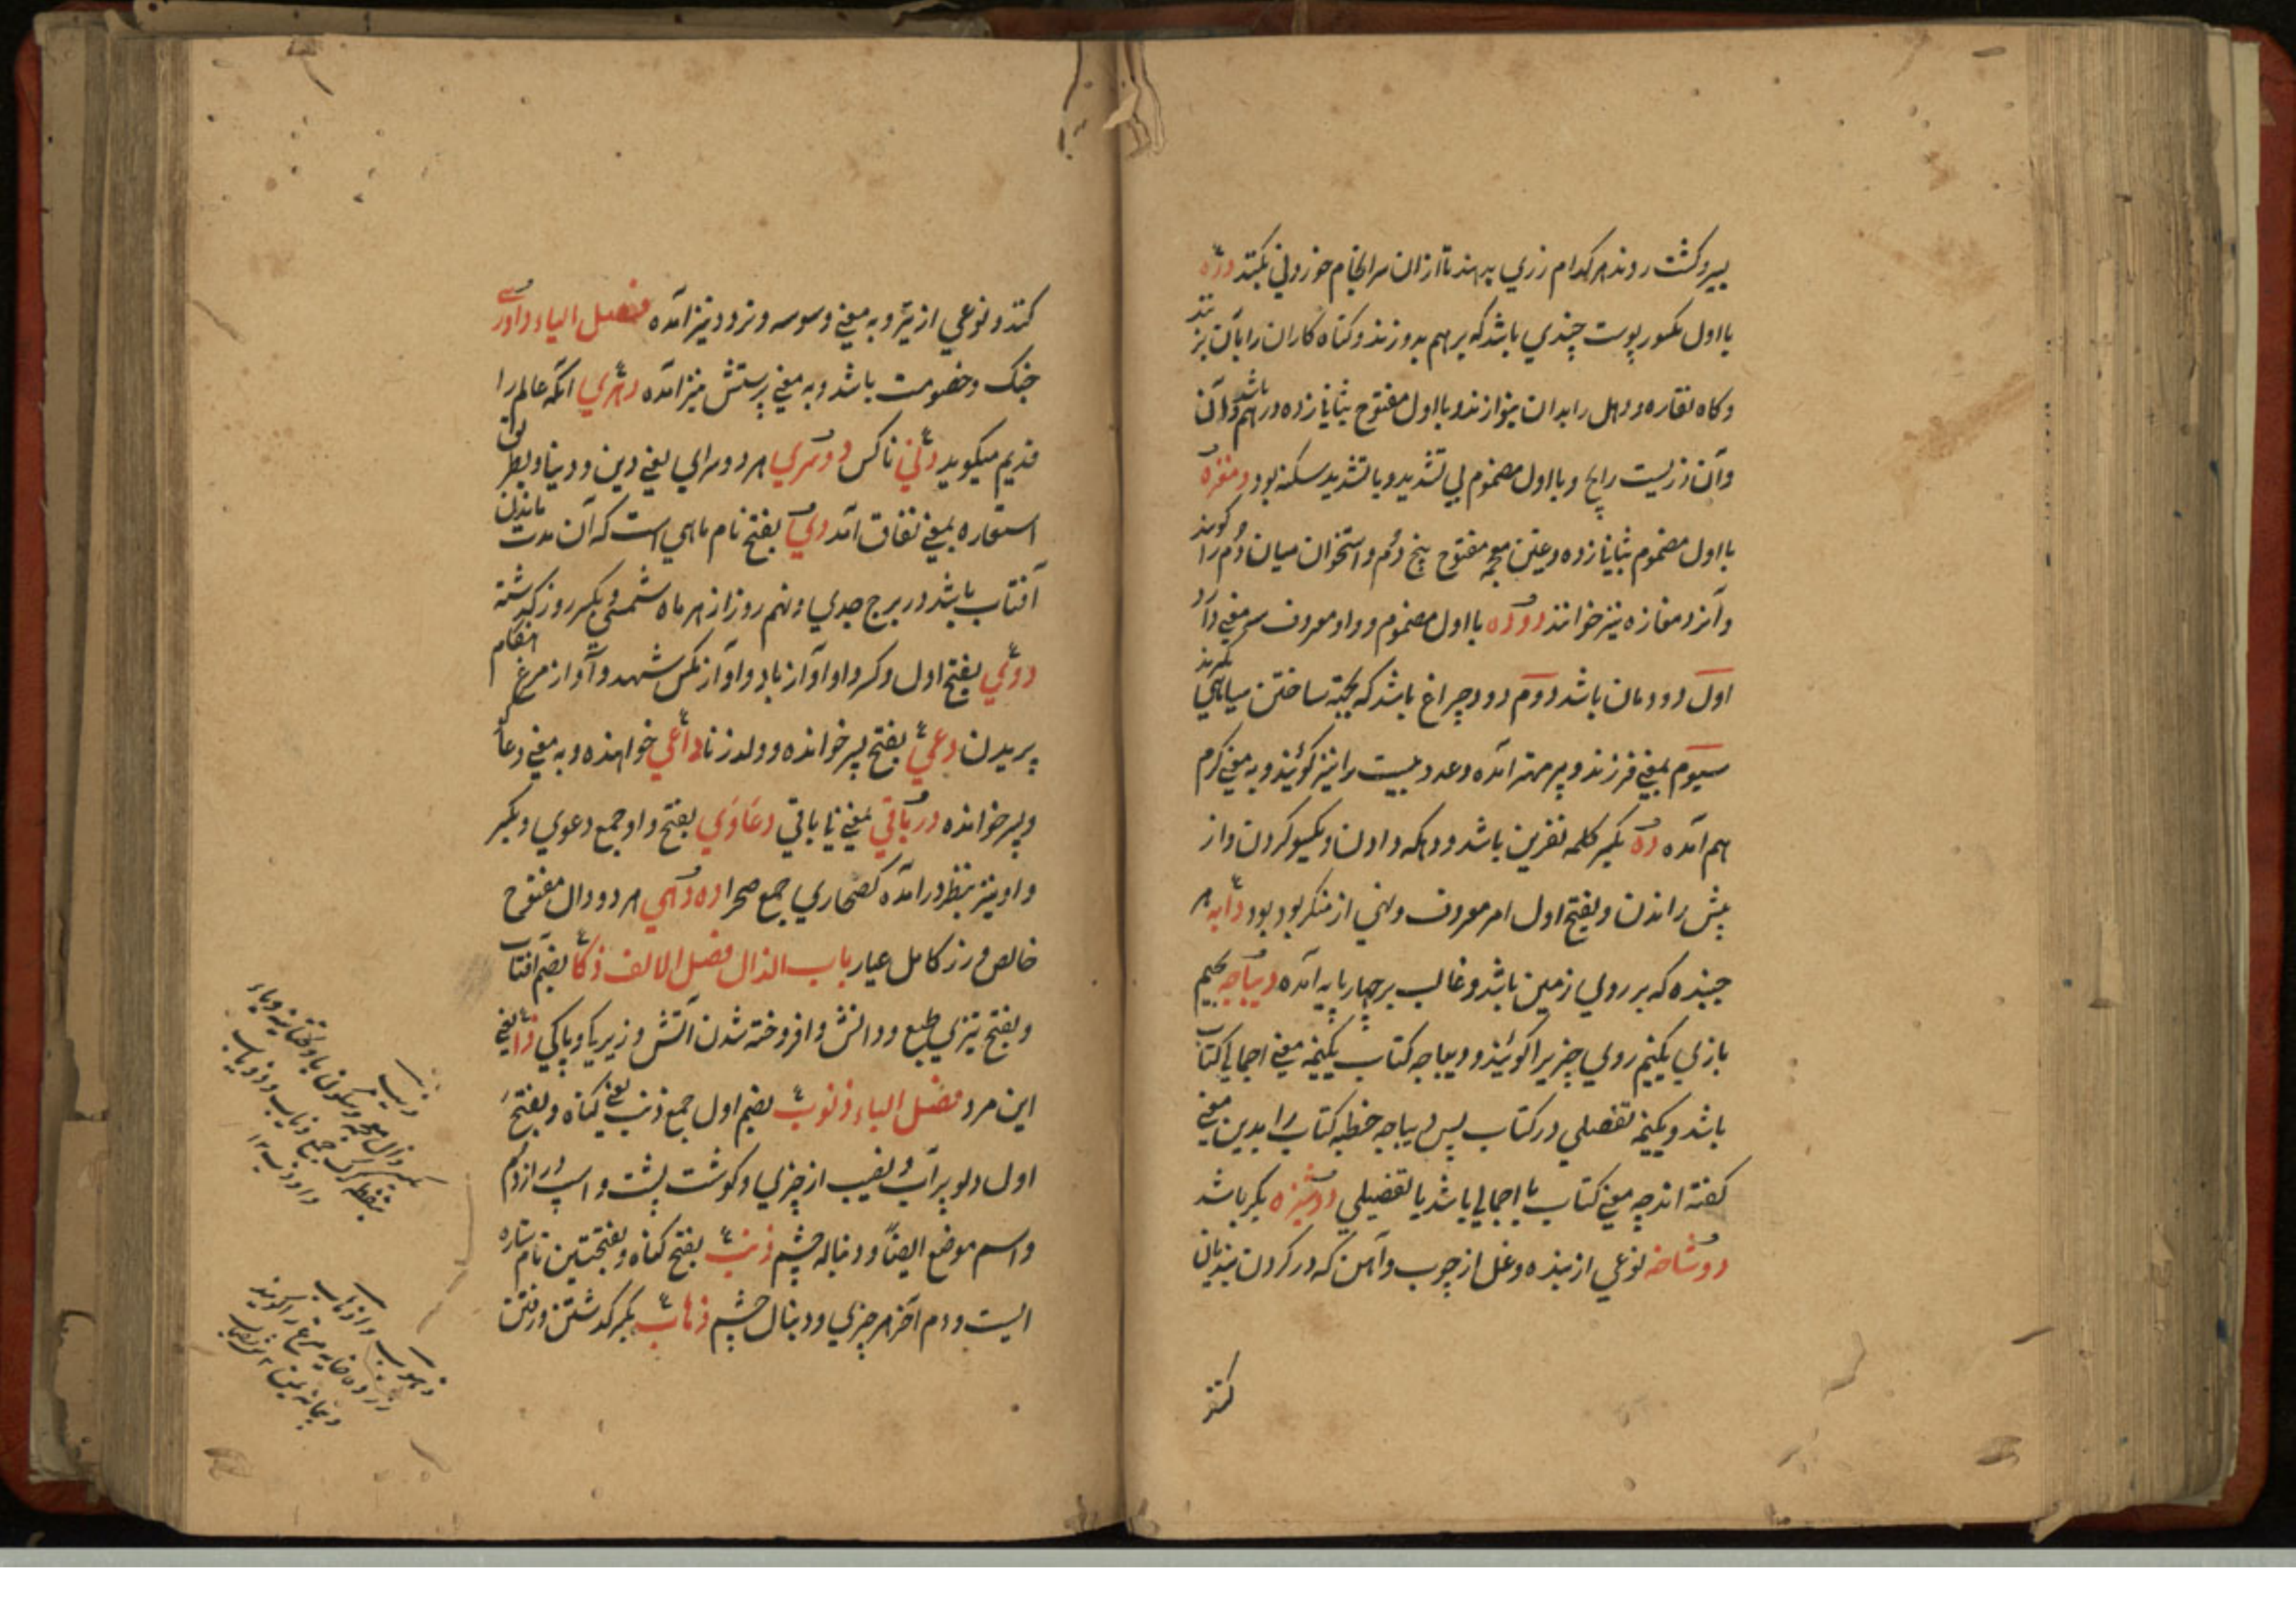 بسیر و کشت روند هر کدام زری بدهند تا ازان سرانجام خوردنی بکنند درّه
با اول مکسور پوست چندی باشد که بر هم بدوزند و کناه کاران را بآن بزنند
و کاه نقاره و دهل را بدان بنوازند و با اول مفتوح بثانی زده درهم باشد و آن
وآن زریست رایج و با اول مضموم بی تشدید و با تشدید سکنه بود دمغزه
با اول مضموم بثانی زده و غین معجمه مفتوح بیخ دُم و استخوان میان دُم را کویند
و آنرا دمغازه نیز خوانند دوده با اول مضموم و واو معروف سه معنی دارد
اول دودمان باشد دوم دود چراغ باشد که بجهة ساختن سیاهی بکیرند
سیوم بمعنی فرزند و پسر مهتر آمده و عدد بیست را نیز کوئیند و به معنی کرم
هم آمده ده بکسر کلمه نفرین باشد و دهکه دادن و یکسو کردن و از
پیش راندن و بفتح اول امر معروف و نهی از منکر بود بود دابه هر
جنبنده که بر روی زمین باشد و غالب بر چهارپایه آمده دیباجه بجیم
بازی یکنیم روی چیزیرا کوئیند و دیباجه کتاب یکنیمه معنی اجمالی کتاب
باشد و یکنیمه تفصیلی در کتاب پس دیباجه خطبه کتاب را بدین معنی
کفته اند چه معنی کتاب یا اجمالی باشد یا تفصیلی دوشیزه بکر باشد
دوشاخه نوعی از نیزه و غل از چوب و آهن که در کردن بندیان
کنند
کنند و نوعی از تیر و به معنی وسوسه و تردد نیز آمده فصل الیاء داوری
جنک و خصومت باشد و به معنی پرستش نیز آمده دهری آنکه عالم را
قدیم میکوید دنی ناکس دوسری هر دو سرای یعنی دین و دنیا و بطریق
استعاره بمعنی نفاق آمد دی بفتح نام ماهی است که آن مدت ماندن
آفتاب باشد در برج جدی و نهم روز از هر ماه شمسی و بکسر روز کذشته
دوی بفتح اول و کسر واو آواز باد و آواز مکس شهد و آواز مرغ هنکام
پریدن دعی بفتح پسر خوانده و ولد زنا داعی خواهنده و به معنی دعا کو
و پسر خوانده درباقی بمعنی نا باقی دعاوی بفتح واو جمع دعوی و بکسر
واو نیز بنظر درآمده کصحاری جمع صحرا ده دهی هر دو دال مفتوح
خالص و زر کامل عیار باب الذال فصل الالف ذکا بضم آفتاب
و بفتح تیزی طبع و دانش و افروخته شدن آتش و زیرکی و پاکی ذا یعنی
این مرد فصل الباء ذنوب بضم اول جمع ذنب یعنی کناه و بفتح
اول دلو پر آب و نصیب از چیزی و کوشت پشت و اسپ دراز دُم
و اسم موضع ایضًا و دنباله چشم ذنب بفتح کناه و بفتحتین نام ستاره
ایست و دم آخر هر چیزی و دنبال چشم ذهاب بکسر کذشتن و رفتن